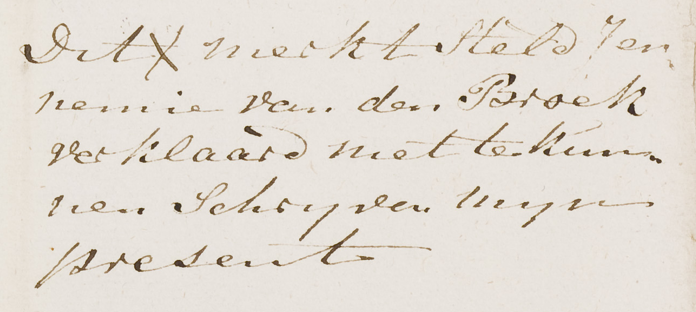 Dit X merkt Steld Jen
nemie van den Broek
verklaard met te kun„
nen Schryven myn
present